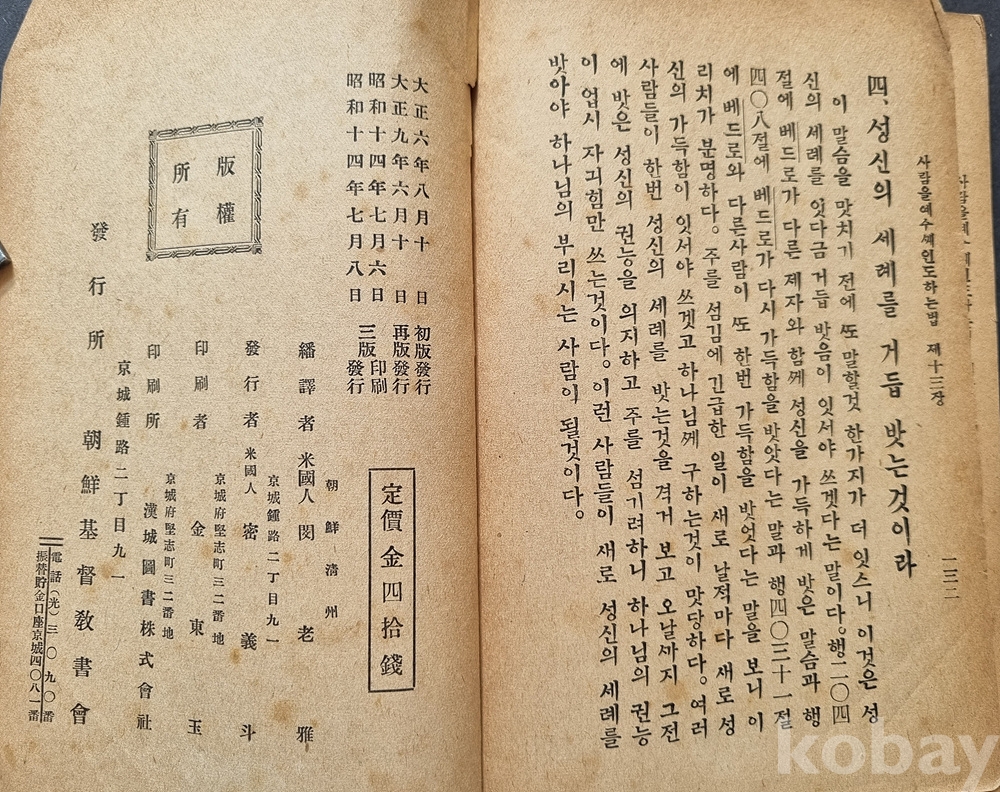 사람을예수ᄭᅦ인도하는법 제十三장
一三二
四、성신의 세례를 거듭 밧는것이라
이 말슴을 맛치기 전에 ᄯᅩ 말할것 한가지가 더 잇스니 이것은 성
신의 세례를 잇다금 거듭 밧음이 잇서야 쓰겟다는 말이다。행二〇四
절에 베드로가 다른 제자와 함ᄭᅦ 성신을 가득하게 밧은 말슴과 행
四〇八절에 베드로가 다시 가득함을 밧앗다는 말과 행四〇三十一절
에 베드로와 다른사람이 ᄯᅩ 한번 가득함을 밧엇다는 말을 보니 이
리치가 분명하다。주를 섬김에 긴급한 일이 새로 날적마다 새로 성
신의 가득함이 잇서야 쓰겟고 하나님ᄭᅦ 구하는것이 맛당하다。여러
사람들이 한번 성신의 세례를 밧는것을 격거 보고 오날ᄭᅡ지 그전
에 밧은 성신의 권능을 의지하고 주를 섬기려하니 하나님의 권능
이 업시 자긔힘만 쓰는것이다。이런 사람들이 새로 성신의 세례를
밧아야 하나님의 부리시는 사람이 될것이다。
大正六年八月十日 初版發行
大正九年六月十日 再版發行
昭和十四年七月六日 三版印刷
昭和十四年七月八日 三版發行
定價金四拾錢
朝鮮清州
繙譯者 米國人 閔老雅
京城鍾路二丁目九一
發行者 米國人 密義斗
京城府堅志町三二番地
印刷者 金東玉
京城府堅志町三二番地
印刷所 漢城圖書株式會社
版權所有
京城鍾路二丁目九一
發行所 朝鮮基督教書會
電話(光)三〇九〇番
振替貯金口座京城四〇八一番
kobay